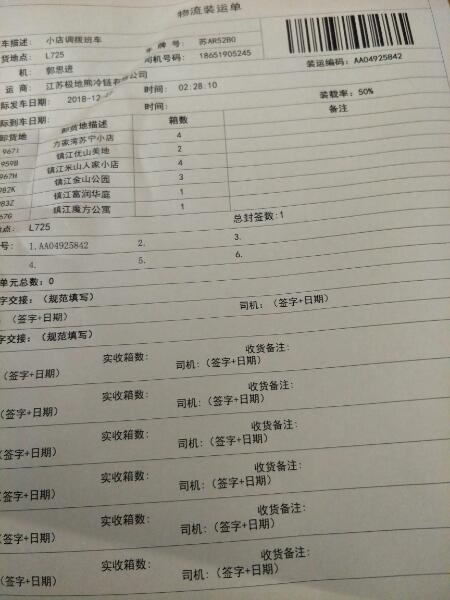 物流装运单
车描述: 小店调拨班车
车 牌 号: 苏AR52B0
货地点: L725
司机号码: 18651905245
机: 郭思进
装运编码: AA04925842
运 商: 江苏极地熊冷链有限公司
时间: 02:28:10
际发车日期: 2018-12-
装载率: 50%
际到车日期:
时间:
备注
卸货地 卸货地描述 箱数
967I 方家湾苏宁小店 4
959B 镇江优山美地 2
967H 镇江米山人家小店 4
982K 镇江金山公园 3
983Z 镇江富润华庭 1
67G 镇江魔方公寓 1
点: L725
总封签数:1
号: 1.AA04925842 2. 3.
4. 5. 6.
单元总数: 0
字交接: (规范填写)
: (签字+日期) 司机: (签字+日期)
字交接: (规范填写)
实收箱数: 收货备注:
(签字+日期) 司机: (签字+日期)
实收箱数: 收货备注:
(签字+日期) 司机: (签字+日期)
实收箱数: 收货备注:
(签字+日期) 司机: (签字+日期)
实收箱数: 收货备注:
(签字+日期) 司机: (签字+日期)
实收箱数: 收货备注:
(签字+日期) 司机: (签字+日期)
实收箱数: 收货备注:
(签字+日期) 司机: (签字+日期)